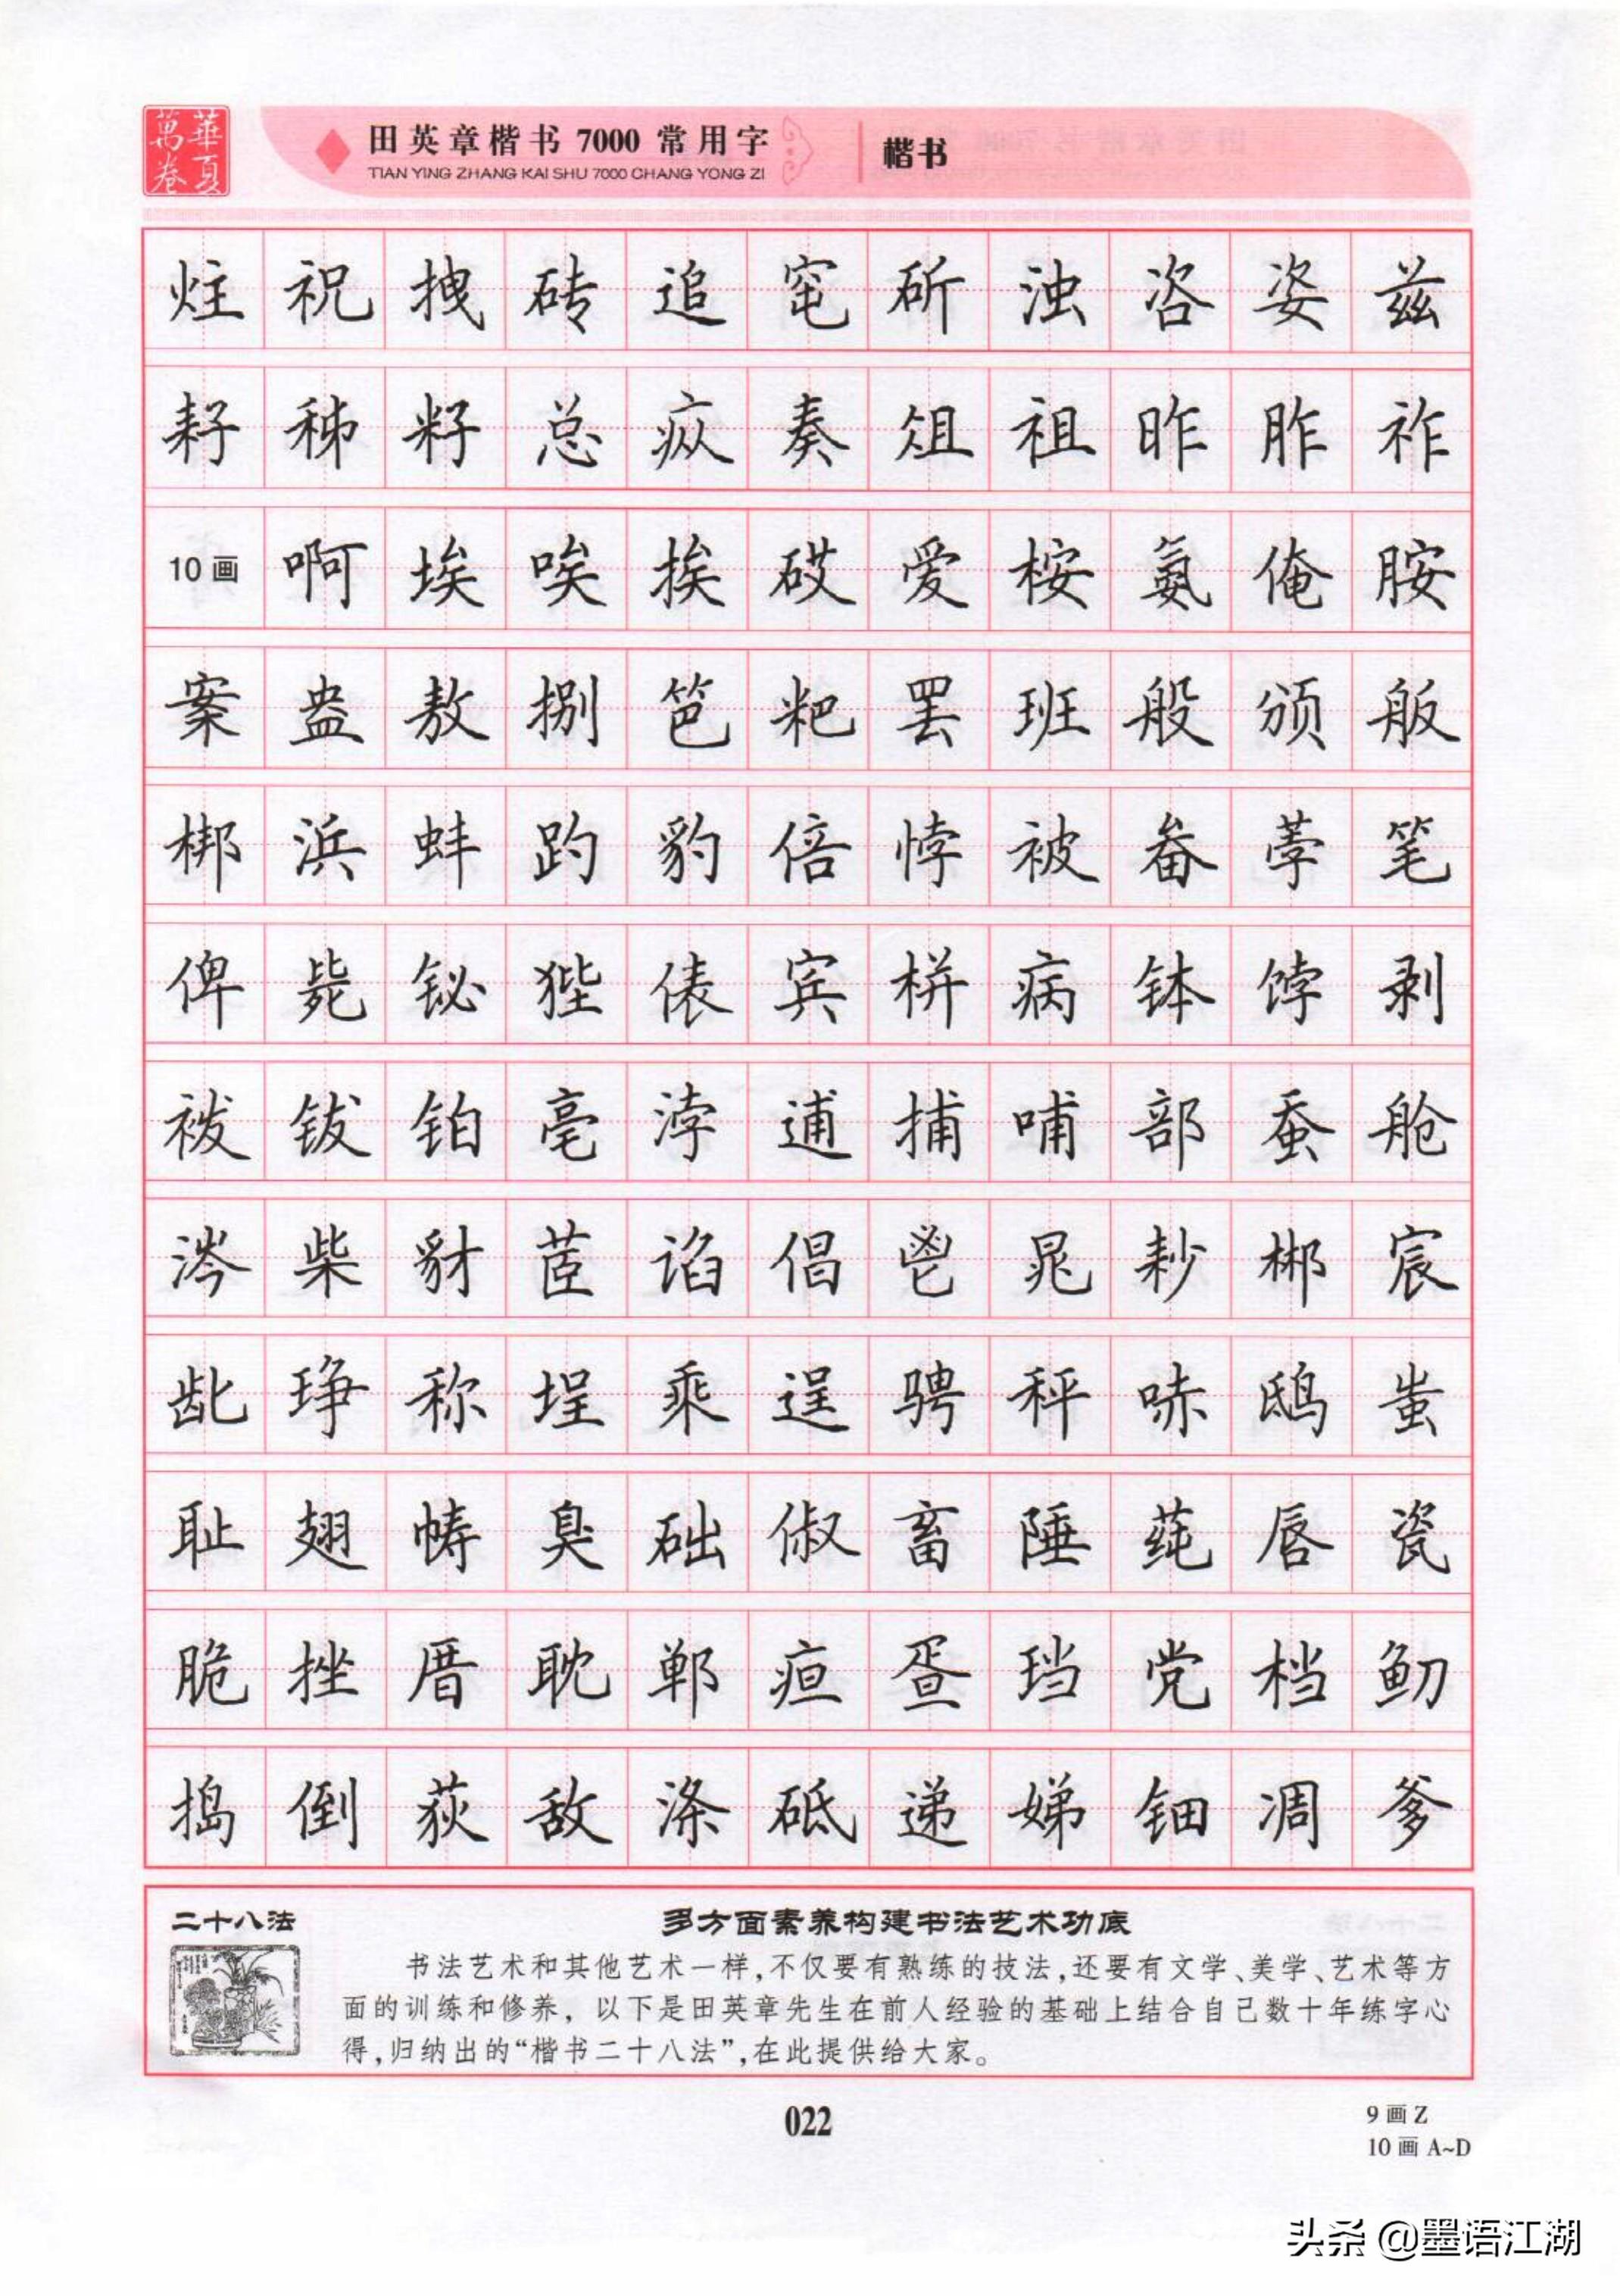 萬華
卷夏
田英章楷书 7000 常用字
楷书
TIAN YING ZHANG KAI SHU 7000 CHANG YONG ZI
炷 祝 拽 砖 追 窀 斫 浊 咨 姿 兹
耔 秭 籽 总 疭 奏 俎 祖 昨 胙 祚
10画 啊 埃 唉 挨 砹 爱 桉 氨 俺 胺
案 盎 敖 捌 笆 粑 罢 班 般 颁 舨
梆 浜 蚌 趵 豹 倍 悖 被 畚 荸 笔
俾 毙 铋 狴 俵 宾 栟 病 钵 饽 剥
袯 钹 铂 亳 浡 逋 捕 哺 部 蚕 舱
涔 柴 豺 茝 谄 倡 鬯 晁 耖 郴 宸
龀 琤 称 埕 乘 逞 骋 秤 哧 鸱 蚩
耻 翅 帱 臭 础 俶 畜 陲 莼 唇 瓷
脆 挫 厝 耽 郸 疸 蛋 珰 党 档 鱽
捣 倒 荻 敌 涤 砥 递 娣 钿 凋 爹
二十八法
多方面素养构建书法艺术功底
书法艺术和其他艺术一样，不仅要有熟练的技法，还要有文学、美学、艺术等方
面的训练和修养，以下是田英章先生在前人经验的基础上结合自己数十年练字心
得，归纳出的“楷书二十八法”，在此提供给大家。
022
9画Z
10画 A~D
头条 @墨语江湖